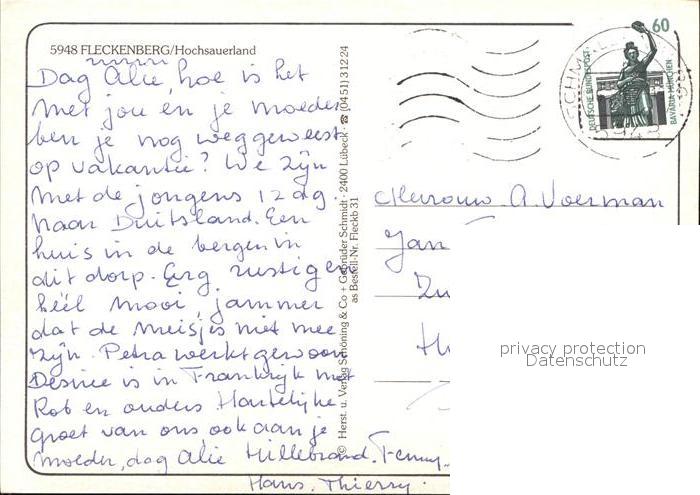 5948 FLECKENBERG/Hochsauerland
Dag Alie, hoe is het
met jou en je moeder
ben je nog weggeweest
op vakantie? We zijn
met de jongens 12 dg.
naar Duitsland. Een
huis in de bergen in
dit dorp. Erg rustig en
héél mooi, jammer
dat de meisjes niet mee
zijn. Petra werkt gewoon
Desiree is in Frankrijk met
Rob en ouders Hartelijke
groet van ons, ook aan je
moeder, dag Alie Hillebrand. Fenny.
Hans. Thierry.
© Herst. u. Verlag Schöning & Co + Gebrüder Schmidt · 2400 Lübeck · ☎ (04 51) 3 12 24
as Bestell-Nr. Fleckb 31
60
DEUTSCHE BUNDESPOST
BAVARIA MÜNCHEN
Mevrouw A. Voerman
Jan
privacy protection
Datenschutz